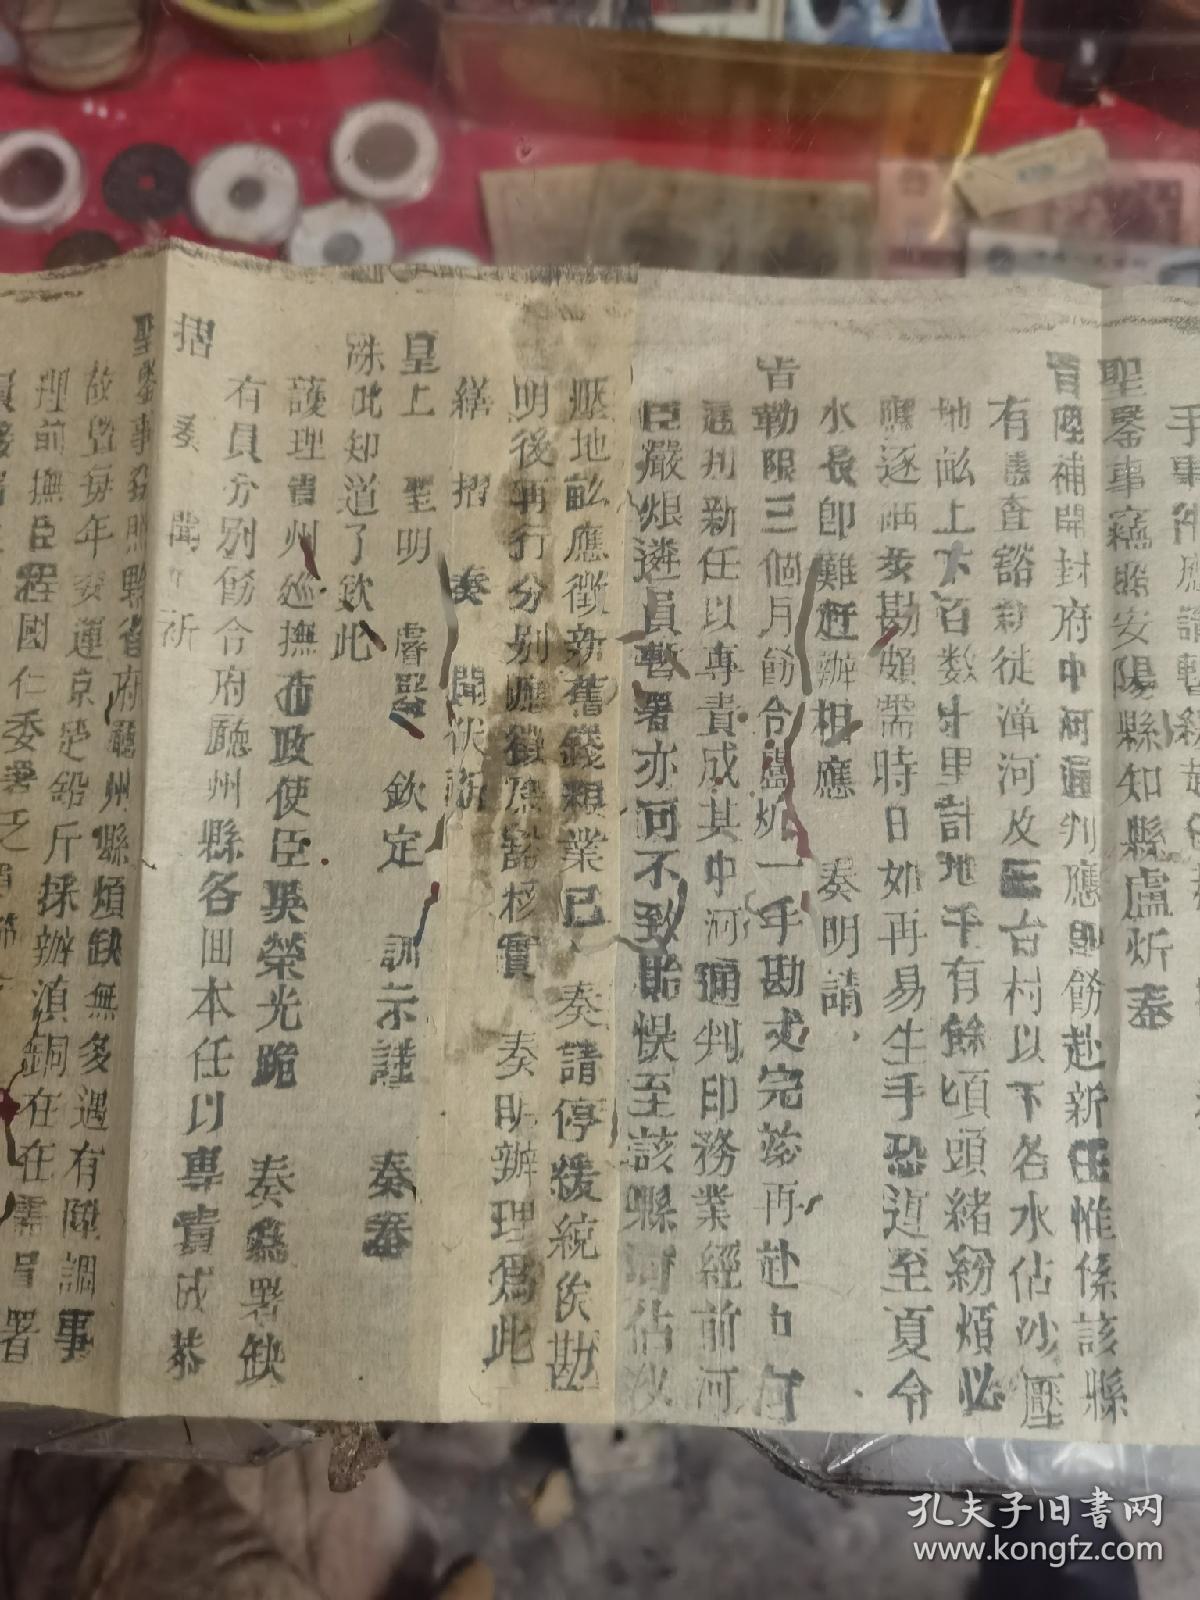 聖鑒事竊照安陽縣知縣盧炘奉
旨陞補開封府中河通判應即飭赴新任惟係該縣
有應查豁新徒漳河及三台村以下各水佔沙壓
地畝上下百數十里計地千有餘頃頭緒紛煩必
應逐畝步勘頗需時日如再易生手恐迟至夏令
水長即難赶辦相應 奏明請
旨勒限三個月飭令盧炘一手勘丈完竣再赴中河
通判新任以專責成其中河通判印務業經前河
臣嚴烺遴員暫署亦可不致貽悞至該縣河佔沙
壓地畝應徵新舊錢糧業已 奏請停緩統俟勘
明後再行分别應徵應豁核實 奏明辦理爲此
繕摺 奏 聞伏祈
皇上 聖明 睿鑒 欽定 訓示謹 奏奉
硃批知道了欽此
護理貴州巡撫布政使臣吳榮光跪 奏爲署缺
有員分别飭令府廳州縣各回本任以專責成恭
摺 奏 聞 祈
聖鑒事 照黔省府廳州縣煩缺無多遇有陞調事
故暨每年委運京 鉛斤採辦滇銅在在需員署
理前撫臣程國仁委署乏